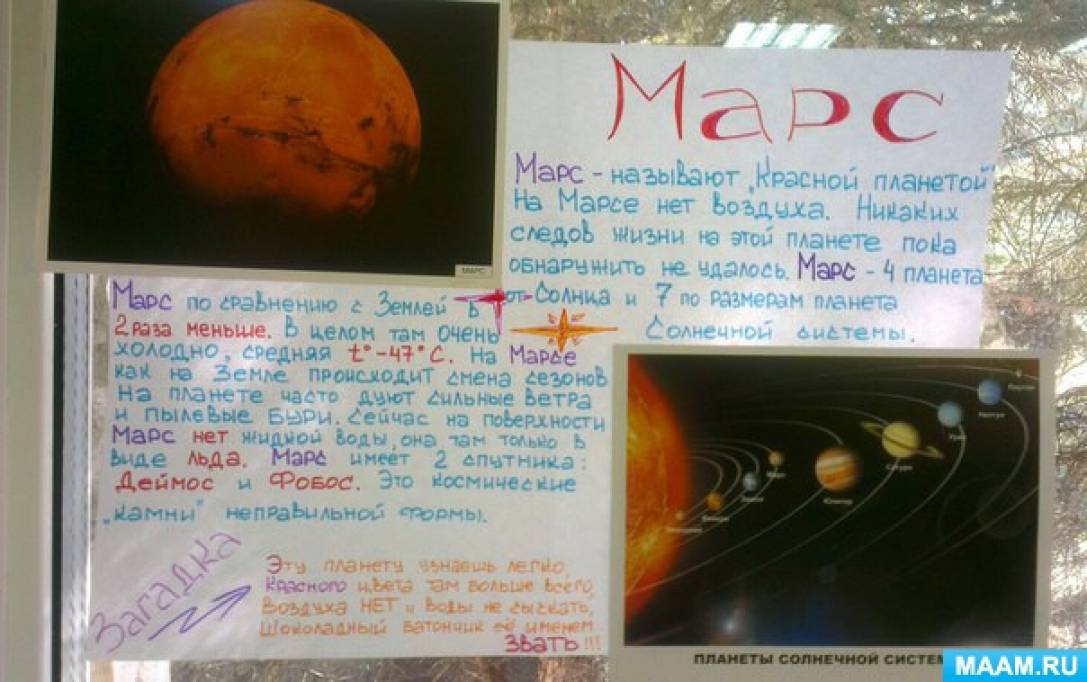 Марс
Марс - называют „Красной планетой"
На Марсе нет воздуха. Никаких
следов жизни на этой планете пока
обнаружить не удалось. Марс - 4 планета
от Солнца и 7 по размерам планета
Солнечной системы.
МАРС
Марс по сравнению с Землей в
2 раза меньше. В целом там очень
холодно, средняя t° -47°C. На Марсе
как на Земле происходит смена сезонов
На планете часто дуют сильные ветра
и пылевые бури. Сейчас на поверхности
Марс нет жидкой воды, она там только в
виде льда. Марс имеет 2 спутника:
Деймос и Фобос. Это космические
„камни" неправильной формы.
Загадка
Эту планету узнаешь легко,
Красного цвета там больше всего,
Воздуха НЕТ и воды не сыскать,
Шоколадный батончик её именем
Звать!!!
Юпитер
Сатурн
Уран
Нептун
ПЛАНЕТЫ СОЛНЕЧНОЙ СИСТЕМ
MAAM.RU